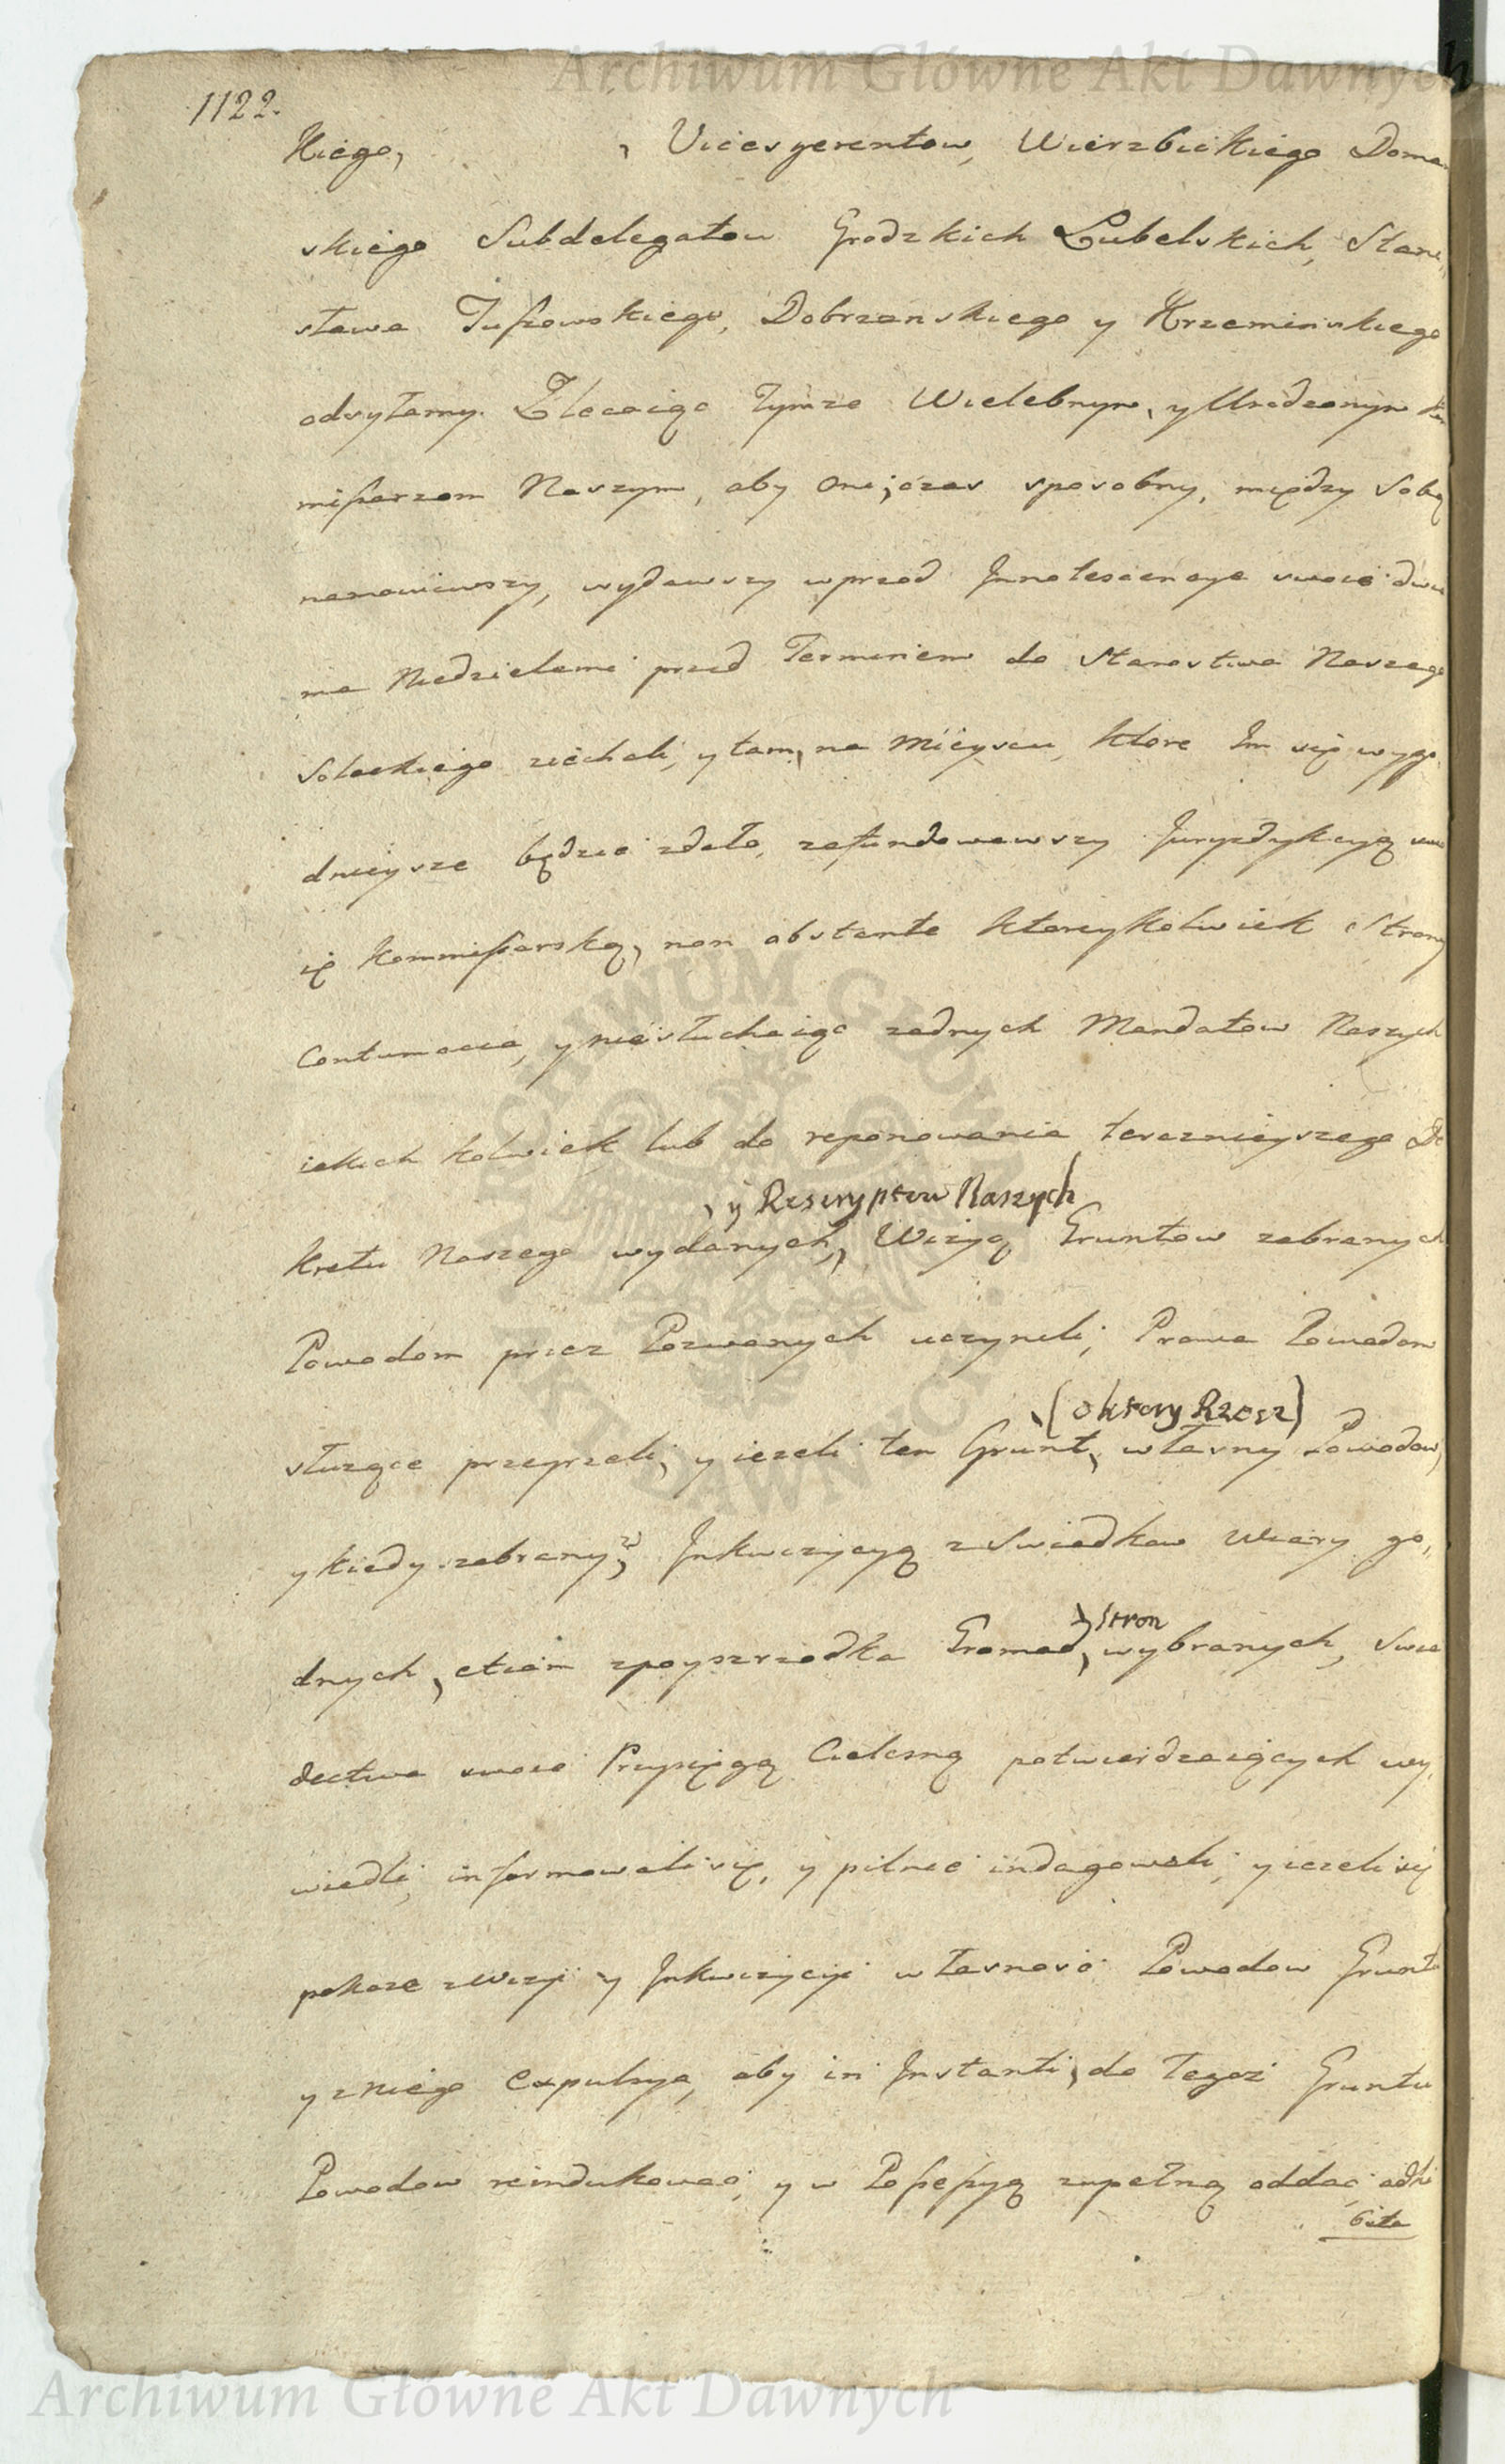 Archiwum Główne Akt Dawnych
1122.
Kiego, , Vicesgerentow, Wierzbickiego Doman
skiego Subdelegatow Grodzkich Lubelskich, Stani„
sława Juszowskiego, Dobrzanskiego y Krzeminskiego
odsyłamy. Zlecaiąc Tymze Wielebnym, y Urodzonym Kom
mißarzom Naszym, aby oni, czas sposobny, między Sobą
namowiwszy, wydawszy wprzod Innotescencye swoie dwie
ma Niedzielami przed Terminem do Starostwa Naszego
Soleckiego ziechali, y tam, na Mieyscu, ktore Im się wygo„
dnieysze będzie zdało, zafundowawszy Juryzdykcyą swo
ię Kommißarską, non obstante ktoreykolwiek Strony
Contumacia, y niesłuchaiąc zadnych Mandatow Naszych
iakich kolwiek lub do reponowania teraznieyszego De
, y Rescryptow Naszych
kretu Naszego wydanych, Wizyą Gruntow zabranych
Powodom przez Pozwanych uczynili, Prawa Powodom
(o ktory Rzecz)
służące przeyrzeli, y iezeli ten Grunt, własny Powodow,
y kiedy zabrany? Inkwizycyą z Swiadkow Wiary go„
Stron
dnych, etiam zpoyszrzodka Gromad, wybranych, Swia
dectwa swoie Przysięgą Cielesną potwierdzaiących wy„
wiedli, informowali się, y pilnie indagowali, y iezeli się
pokaze z Wizyi y Inkwizycyi własnosc Powodow Gruntu
y z niego Expulsya, aby in Instanti, do tegoż Gruntu
Powodow reindukowac, y w Poßeßyą zupełną oddac, odbi
biła
ARCHIWUM GŁÓWNE AKT DAWNYCH
Archiwum Główne Akt Dawnych